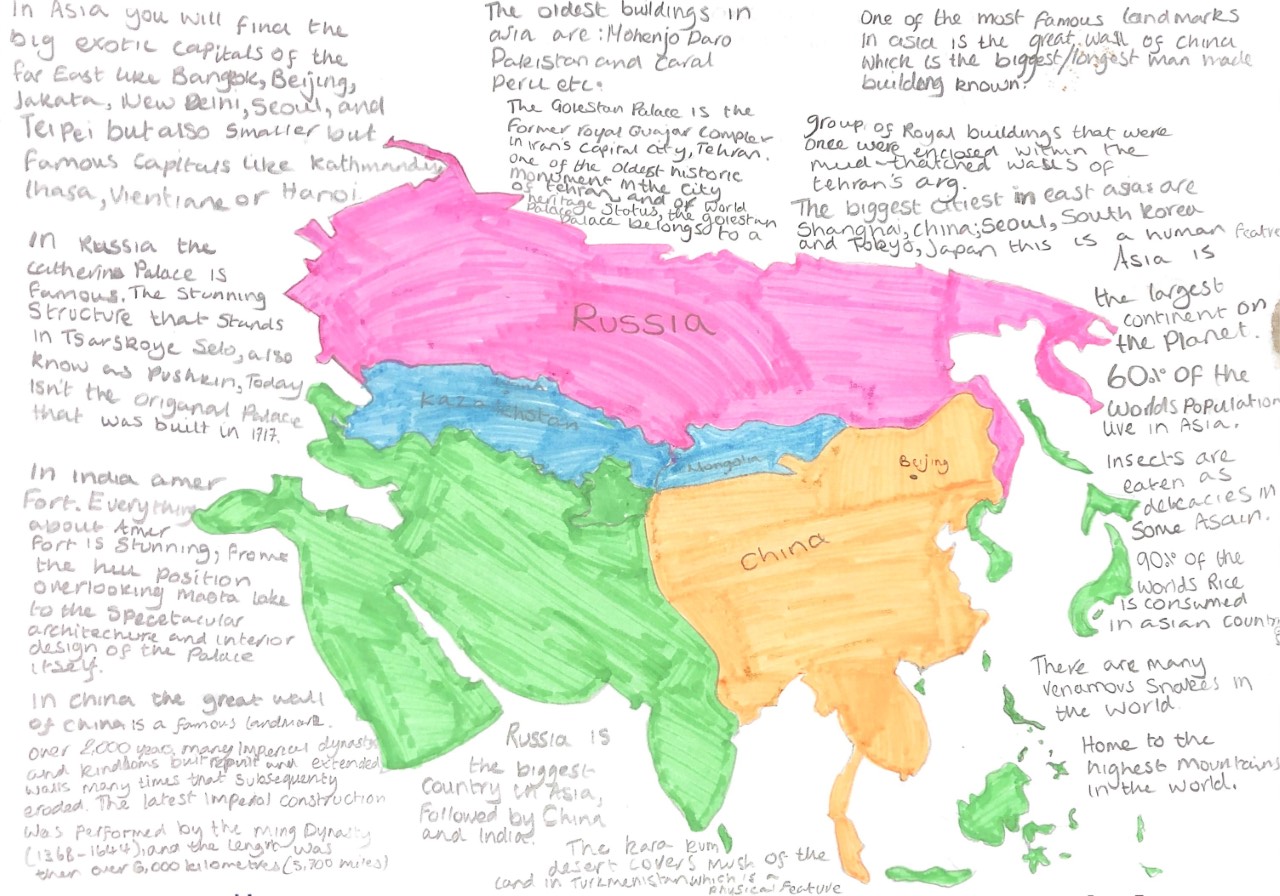 In Asia you will find the
big exotic capitals of the
far East like Bangok, Beijing,
Jakata, New Delhi, Seoul, and
Teipei but also smaller but
famous capitals like Kathmandu
lhasa, Vientiane or Hanoi
The oldest buildings in
asia are: Mohenjo Daro
Pakistan and Caral
Peru etc.
The Golestan Palace is the
former royal Guajar Compler
in Iran's capital city, Tehran.
one of the oldest historic
monument in the city
of tehran and of world
heritage
Palace status, the golestan
Palace belongs to a
One of the most famous landmarks
in asia is the great wall of china
which is the biggest/longest man made
building known.
group of Royal buildings that were
once were enclosed within the
mud-thatched walls of
tehran's arg.
The biggest citiest in east asias are
Shanghai, China; Seoul, South Korea
and Tokyo, Japan this is a human feature
Asia is
the largest
continent on
the Planet.
60% of the
Worlds Population
live in Asia.
Insects are
eaten as
delicacies in
Some Asain.
90% of the
worlds Rice
is consumed
in asian
There are many
venamous snakes in
the world
Home to the
highest mountains
in the world.
In Russia the
Catherine Palace is
famous. The Stunning
Structure that stands
in Tsarskoye Selo, also
know as Pushkin, Today
Isn't the origanal Palace
that was built in 1717.
In india amer
Fort. Everything
about Amer
Fort is Stunning, frome
the hill position
overlooking Maota lake
to the Specetacular
architechure and interior
design of the Palace
itself.
In china the great wall
of china is a famous landmark.
over 2,000 years, many Imperial dynasty
and kindloms built repuilt and extended
walls many times that subsequenty
eroded. The latest Imperol construction
was performed by the ming Dynasty
(1368-1644), and the lenght was
then over 6,000 kilometres (3,700 miles)
Russia is
the biggest
country in Asia,
followed by China
and India.
The kara kum
desert covers mush of the
land in Turkmenistan which is a
physical feature
Russia
Kazakhstan
Mongolia
Beijing
China